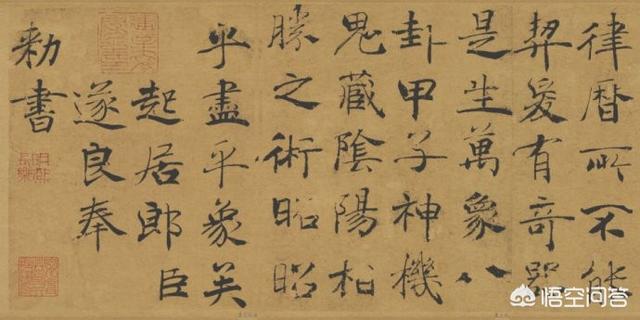 律曆所不能
契爰有奇器
是生萬象八
卦甲子神機
鬼藏陰陽相
勝之術昭昭
乎盡乎象矣
起居郎臣
遂良奉
勅書
悟空问答